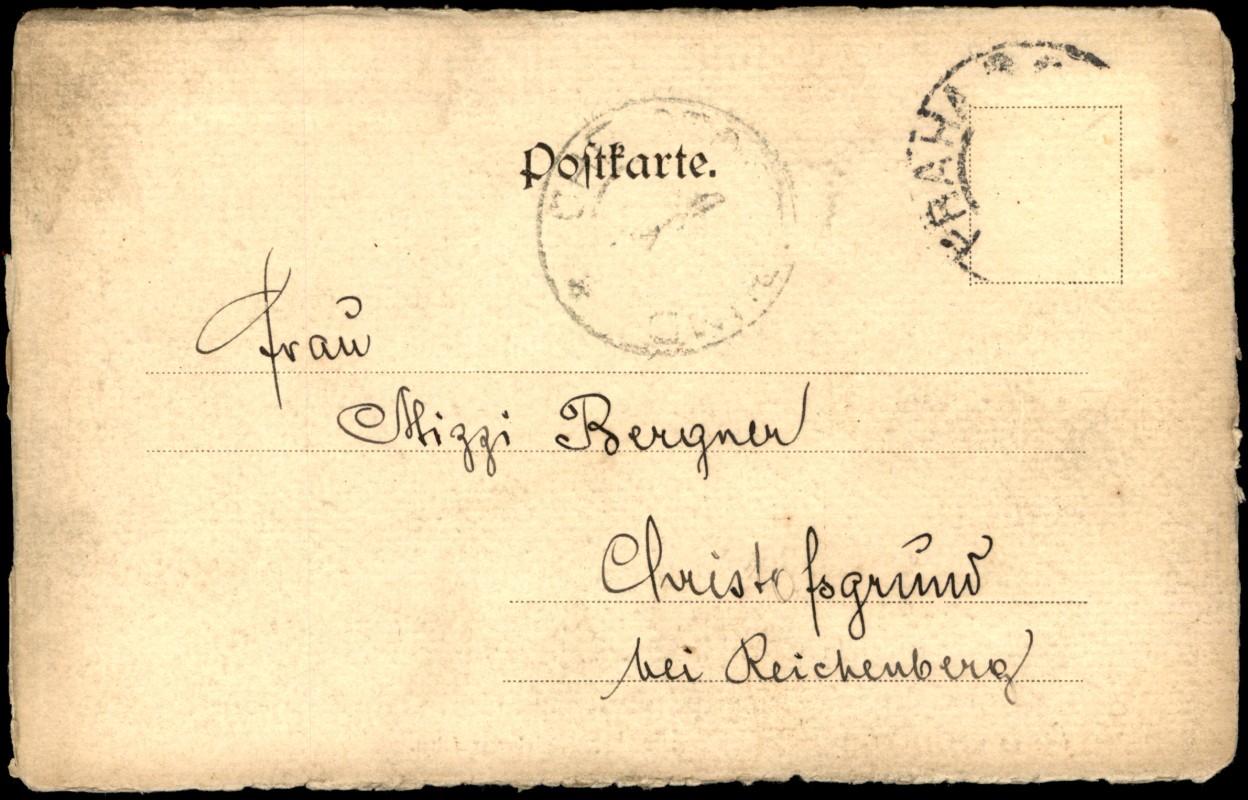 Postkarte.
PRAHA
Frau
Mizzi Bergner
Christofsgrund
bei Reichenberg